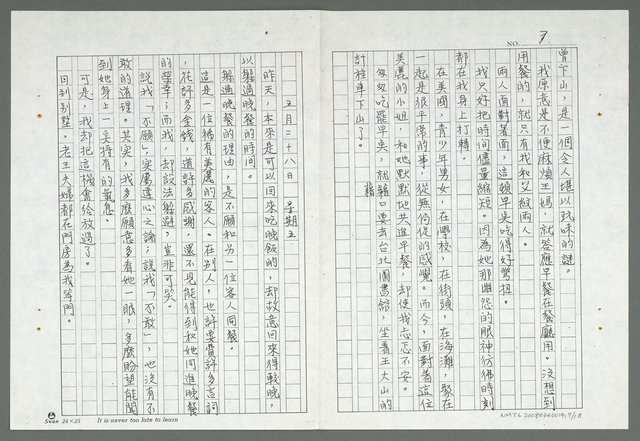 NO. 7
曾下山，是一個令人堪以玩味的謎。
我原意是不便麻煩王媽，就答應早餐在餐廳用。沒想到
用餐的，就只有我和艾敏兩人。
兩人面對着面，這頓早点吃得好彆扭。
我只好把時間儘量縮短。因為她那幽怨的眼神彷彿時刻
都在我身上打轉。
在美國，青少年男女，在學校，在街頭，在海灘，聚在
一起是很平常的事，從無侷促的感覺。而今，面對着這位
美麗的小姐，和她默默地共進早餐，却使我忐忑不安。
匆匆吃罷早点，就藉口要去台北圖書館，坐着王大山的
計程車下山了。
五月二十八日　星期五
昨天，本來是可以回來吃晚飯的，却故意回來得較晚，
以躲過晚餐的時間。
躲過晚餐的理由，是不願和另一位客人同餐。
這是一位稀有美麗的客人。在別人，也許要費許多言詞
，花許多金錢，這許多感謝，還不見能得到和她同進晚餐
的榮幸；而我，却設法躲避，豈非可笑。
說我「不願」，實屬違心之論；說我「不敢」，也沒有不
敢的道理。其实，我多麼願意多看她一眼，多麼盼望能聞
到她身上一点特有的氣息。
可是，我却把這機會給放過了。
回到別墅，老王夫婦都在門房為我等門。
Swan 24×25 It is never too late to learn